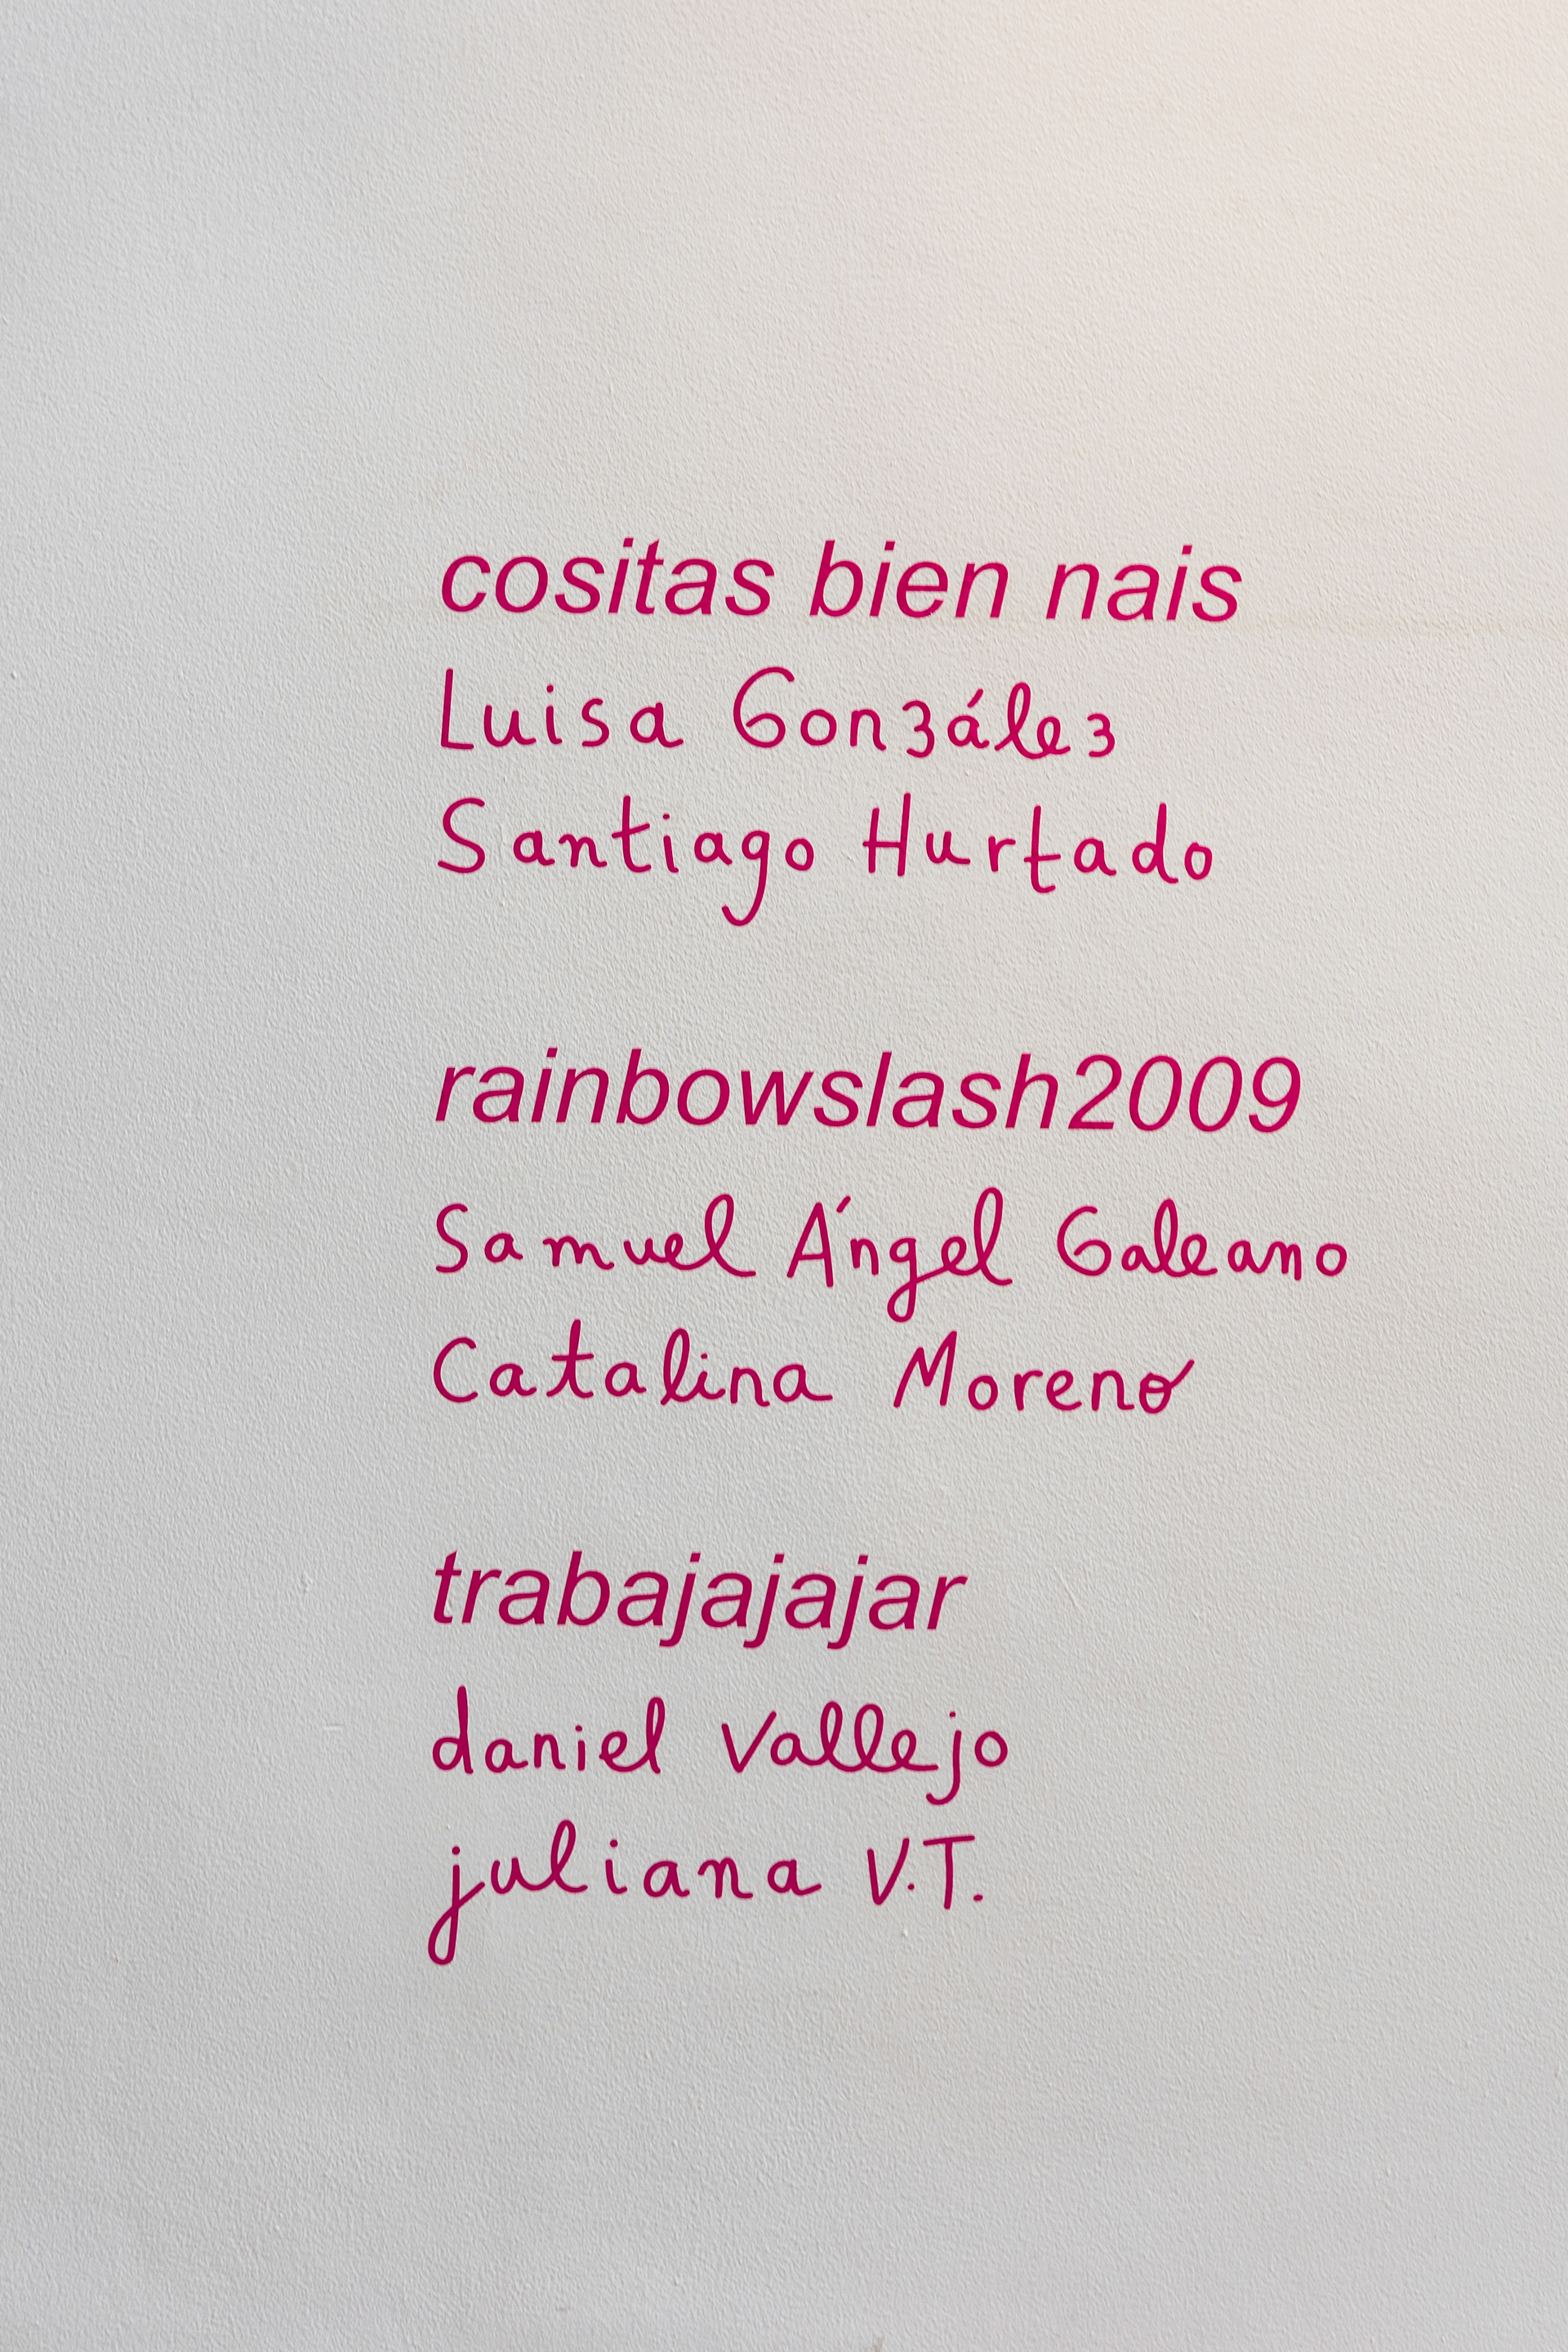 cositas bien nais
Luisa González
Santiago Hurtado
rainbowslash2009
Samuel Ángel Galeano
Catalina Moreno
trabajajajar
daniel Vallejo
juliana V.T.